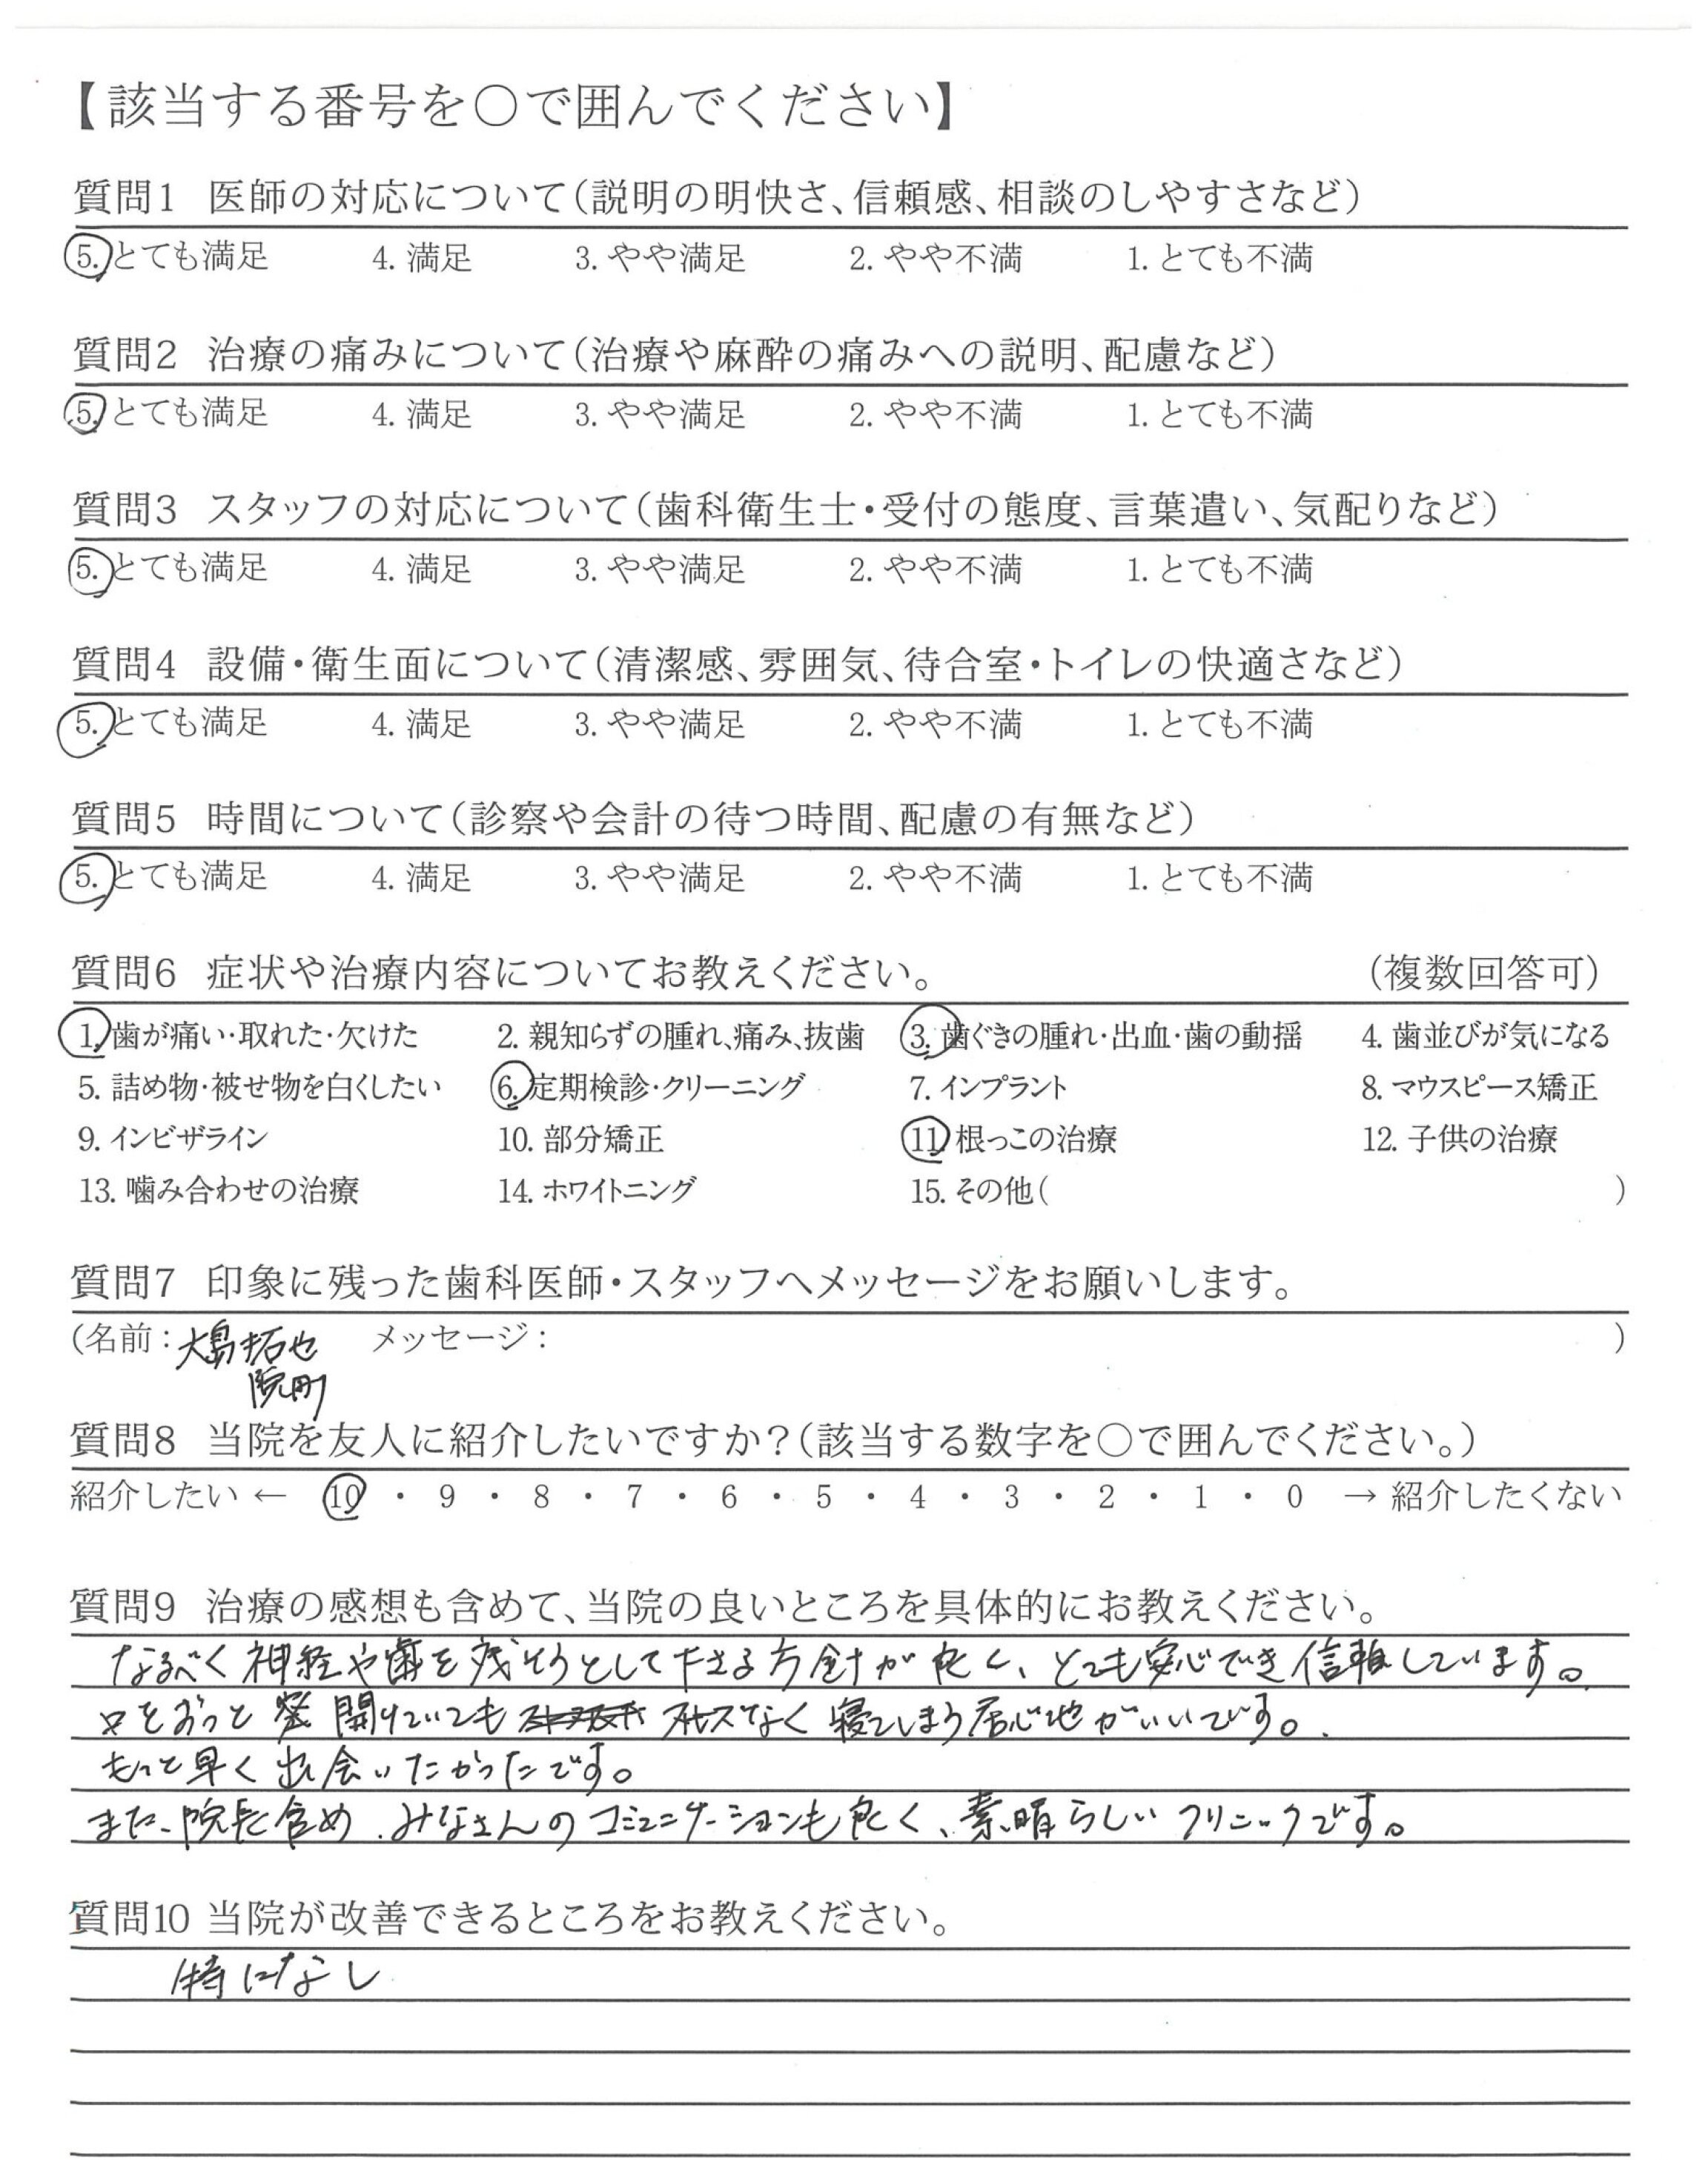 【該当する番号を○で囲んでください】
質問1 医師の対応について(説明の明快さ、信頼感、相談のしやすさなど)
5. とても満足 4. 満足 3. やや満足 2. やや不満 1. とても不満
質問2 治療の痛みについて(治療や麻酔の痛みへの説明、配慮など)
5. とても満足 4. 満足 3. やや満足 2. やや不満 1. とても不満
質問3 スタッフの対応について(歯科衛生士・受付の態度、言葉遣い、気配りなど)
5. とても満足 4. 満足 3. やや満足 2. やや不満 1. とても不満
質問4 設備・衛生面について(清潔感、雰囲気、待合室・トイレの快適さなど)
5. とても満足 4. 満足 3. やや満足 2. やや不満 1. とても不満
質問5 時間について(診察や会計の待つ時間、配慮の有無など)
5. とても満足 4. 満足 3. やや満足 2. やや不満 1. とても不満
質問6 症状や治療内容についてお教えください。 (複数回答可)
1. 歯が痛い・取れた・欠けた 2. 親知らずの腫れ、痛み、抜歯 3. 歯ぐきの腫れ・出血・歯の動揺 4. 歯並びが気になる
5. 詰め物・被せ物を白くしたい 6. 定期検診・クリーニング 7. インプラント 8. マウスピース矯正
9. インビザライン 10. 部分矯正 11. 根っこの治療 12. 子供の治療
13. 噛み合わせの治療 14. ホワイトニング 15. その他( )
質問7 印象に残った歯科医師・スタッフへメッセージをお願いします。
(名前:大島拓也 メッセージ: )
院
質問8 当院を友人に紹介したいですか?(該当する数字を○で囲んでください。)
紹介したい ← 10 ・ 9 ・ 8 ・ 7 ・ 6 ・ 5 ・ 4 ・ 3 ・ 2 ・ 1 ・ 0 → 紹介したくない
質問9 治療の感想も含めて、当院の良いところを具体的にお教えください。
なるべく神経や歯を残そうとして下さる方針が良く、とても安心でき信頼しています。
口をずっと 開けていても ストレスなく 寝てしまう居心地がいいです。
もっと早く出会いたかったです。
また、院長含め、みなさんのコミュニケーションも良く、素晴らしいクリニックです。
質問10 当院が改善できるところをお教えください。
特になし